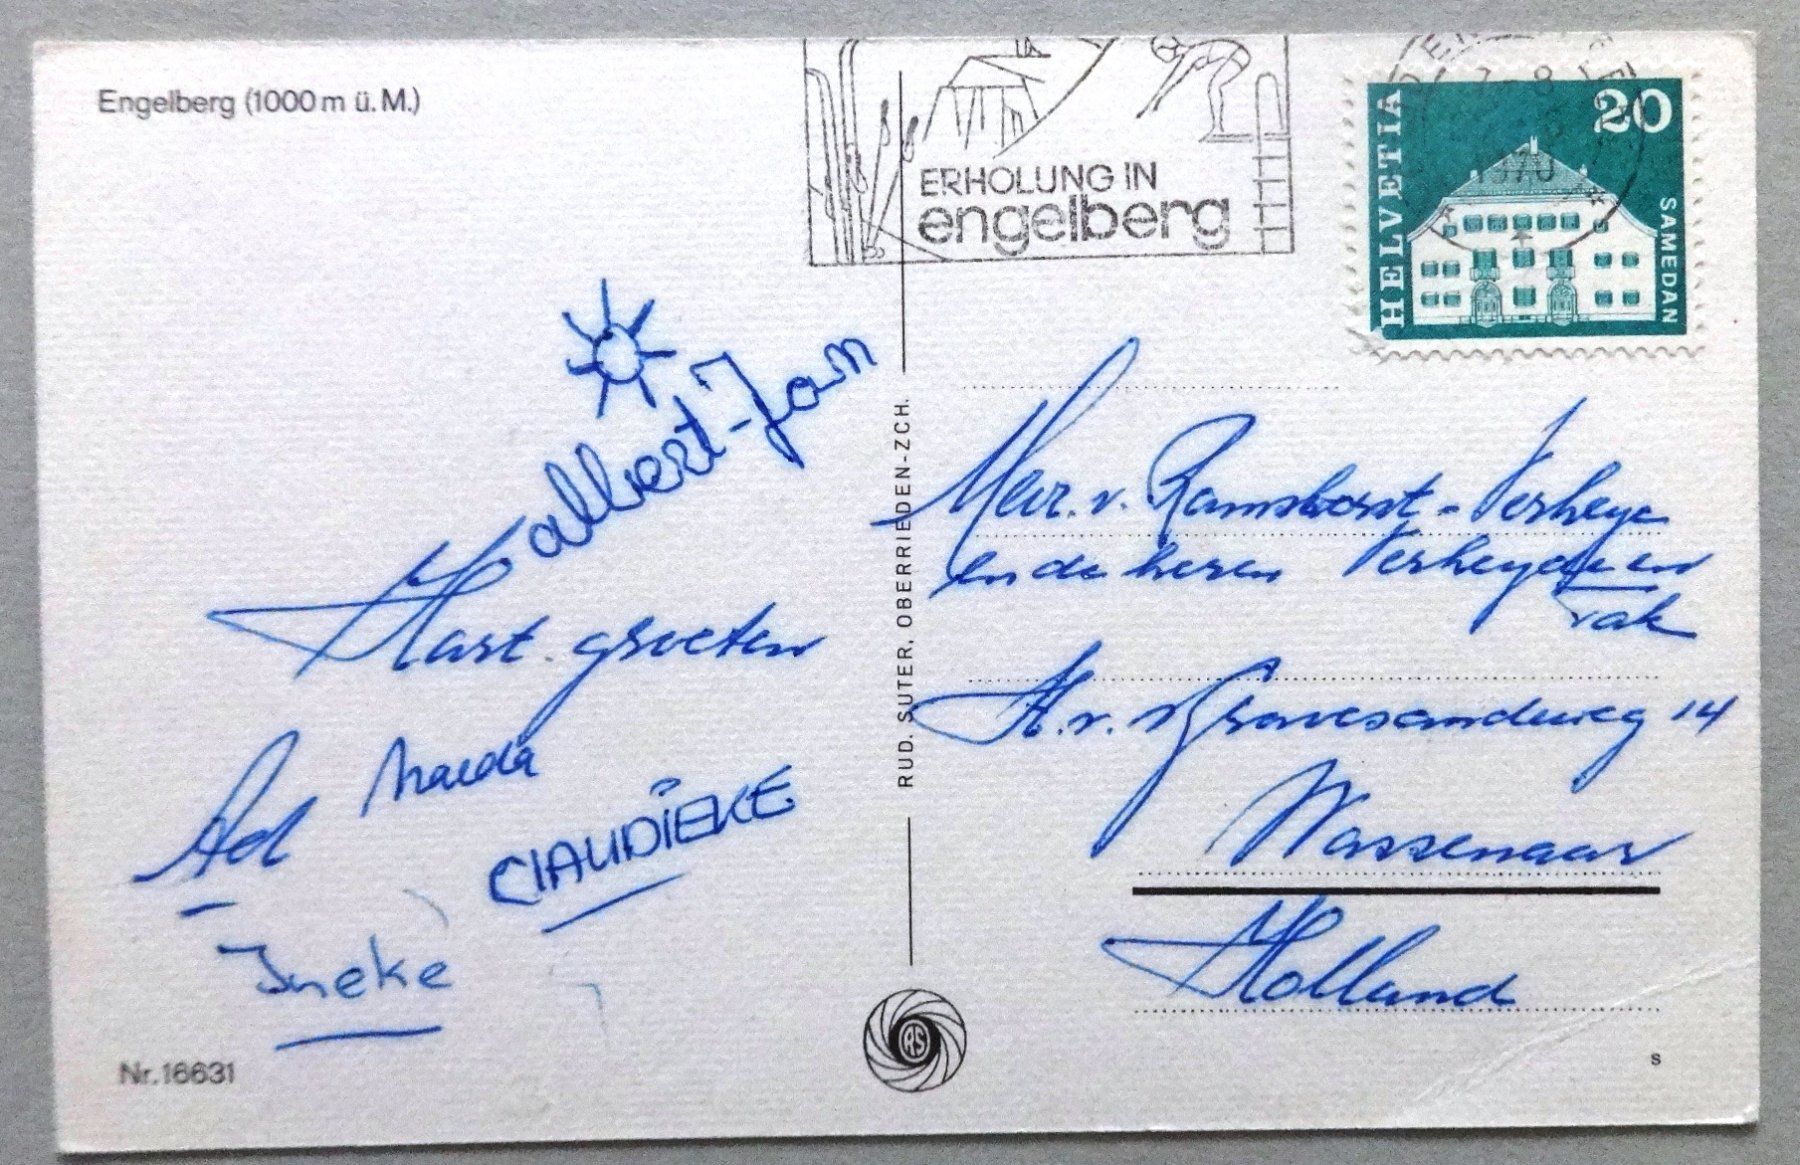 Engelberg (1000 m ü. M.)
ERHOLUNG IN
engelberg
1970
HELVETIA
20
SAMEDAN
albert-Jan
Hart. groeten
Ad
CLAUDIEKE
Ineke
Nr. 16631
RUD. SUTER, OBERRIEDEN-ZCH.
RS
Mevr. v. Ramshorst - Verheye
en de heren Verheyden en
Vak
H. v. 's Gravesandeweg 14
Wassenaar
Holland
s